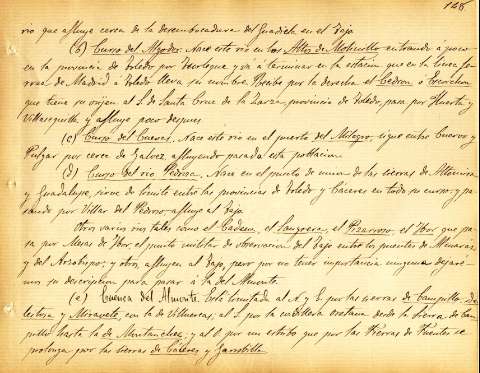 148
rio que afluye cerca de la desembocadura del Guadiela en el Tajo
(b) Curso del Algodor. Nace este rio en los Altos de Molinillo entrando á poco
en la provincia de Toledo por y vá á terminar en la estacion que en la linea fé-
rrea de Madrid á Toledo lleva su nombre. Recibe por la derecha el Cedron ó
que tiene su origen al S. de Santa Cruz de la Zarza, provincia de Toledo, pasa por Huerta y
Villasequilla y afluye poco despues
(c) Curso del Cuevas. Nace este rio en el puerto del Milagro, sigue entre Cuerva y
Pulgar por cerca de Galvez afluyendo pasada esta poblacion
(d) Curso del rio Pedroso. Nace en el punto de union de las sierras de Altamira
y Guadalupe, sirve de limite entre las provincias de Toledo y Cáceres en todo su curso, y pa-
sando por Villar del Pedroso afluye al Tajo
Otros varios rios tales como el el Sangrera, el Pizarroso, el Ibor que pa-
sa por Mesas de Ibor, el punto militar de observacion del Tajo entre los puentes de Almaraz
y del Arzobispo, y otros afluyen al Tajo, pero por no tener importancia ninguna dejaré-
mos su descripcion para pasar á la del Almonte.
(e) Cuenca del Almonte. Está limitada al N. y E. por las sierras de
y Miravete, con la de Villuercas, al S. por la cordillera oretana desde la sierra de
hasta la de Montanchez, y al O. por un estribo que por las Sierras de Fuentes se
prolonga por las sierras de Cáceres y